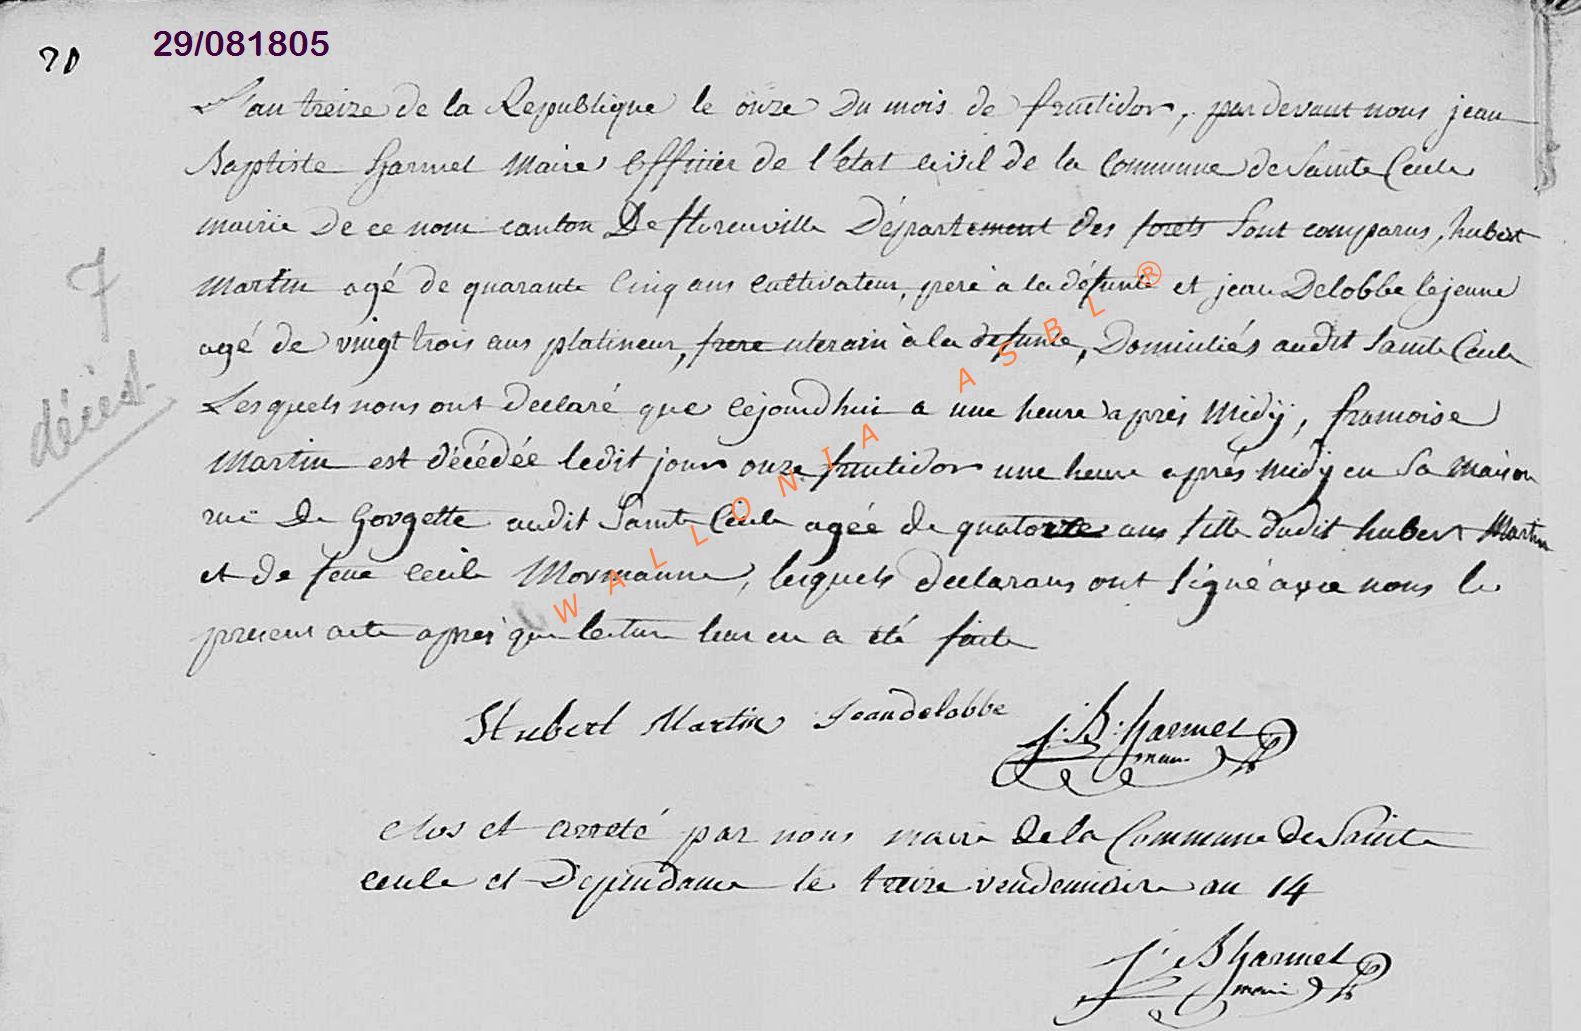 29/081805
L'an treize de la Republique le onze du mois de fructidor, par devant nous jean
Baptiste Harmel Maire Officier de l'état civil de la Commune de Sainte Cecile
mairie de ce nom canton De florenville Département des forets Sont comparus, hubert
Martin agé de quarante Cinq ans Cultivateur, pere à la défunte et jean Delobbe le jeune
agé de vingt trois ans platineur, frere uterain à la défunte, Domiciliés audit Sainte Cecile
Lesquels nous ont declaré que cejourdhui a une heure aprés Midÿ, francoise
Martin est décédée ledit jour onze fructidor une heure aprés midÿ en Sa Maison
rue De Gorgette audit Sainte Cécile agée de quatorze ans fille dudit hubert Martin
et de feue Cecile Mormanne, lesquels declarans ont Signé avec nous le
present acte aprés que lecture leur en a été faite
7
décéd.
Hubert Martin Jeandelobbe J: B: Harmel
maire
Clos et arreté par nous maire de la Commune de Sainte
Cecile et Dependance le treize vendemiaire an 14
J B Harmel
maire
WALLONIA ASBL ®